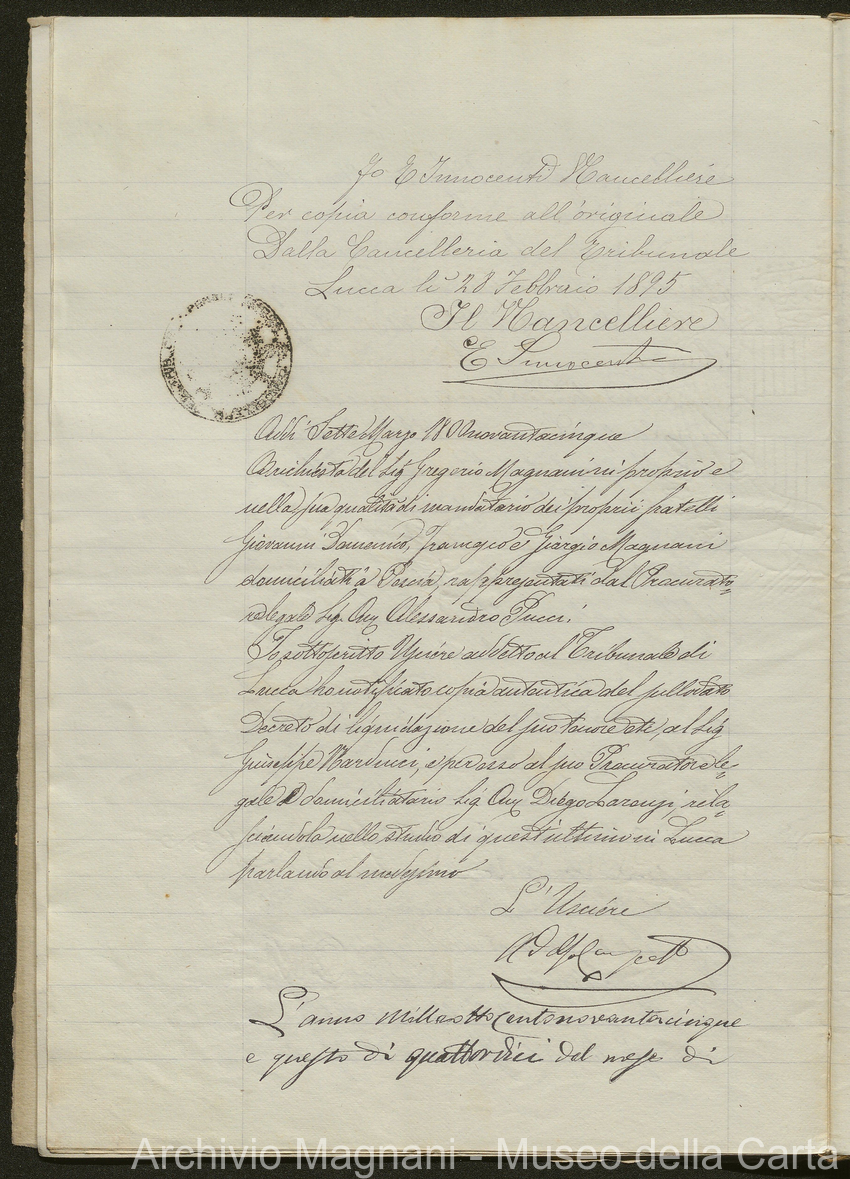 Fo E Innocenti Vancelliere
Per copia conforme all'originale
Dalla Cancelleria del Tribunale
Lucca li 28 Febbraio 1895
Il Vancelliere
E Innocenti
Addi Sette Marzo 1800novantacinque
A richiesta del Sig Gregorio Magnani in proprio e
nella sua qualità di mandatario dei proprii fratelli
Giovanni Domenico, Francesco e Giorgio Magnani
domiciliati a Pescia, rappresentati dal Procurato=
re legale Sig. Avv Alessandro Pucci.
Io sottoscritto Usciere addetto al Tribunale di
Lucca ho notificato copia autentica del sullodato
Decreto di liquidazione del suo tenore etc al Sig
Giuseppe Narducci, e per esso al suo Procuratore le=
gale e domiciliatario Sig Avv Diego, rila=
sciandola nello studio di quest'ultimo in Lucca
parlando al medesimo
L'Usciere
L'anno milleottocentonovantacinque
e questo dì quattordici del mese di
Archivio Magnani - Museo della Carta